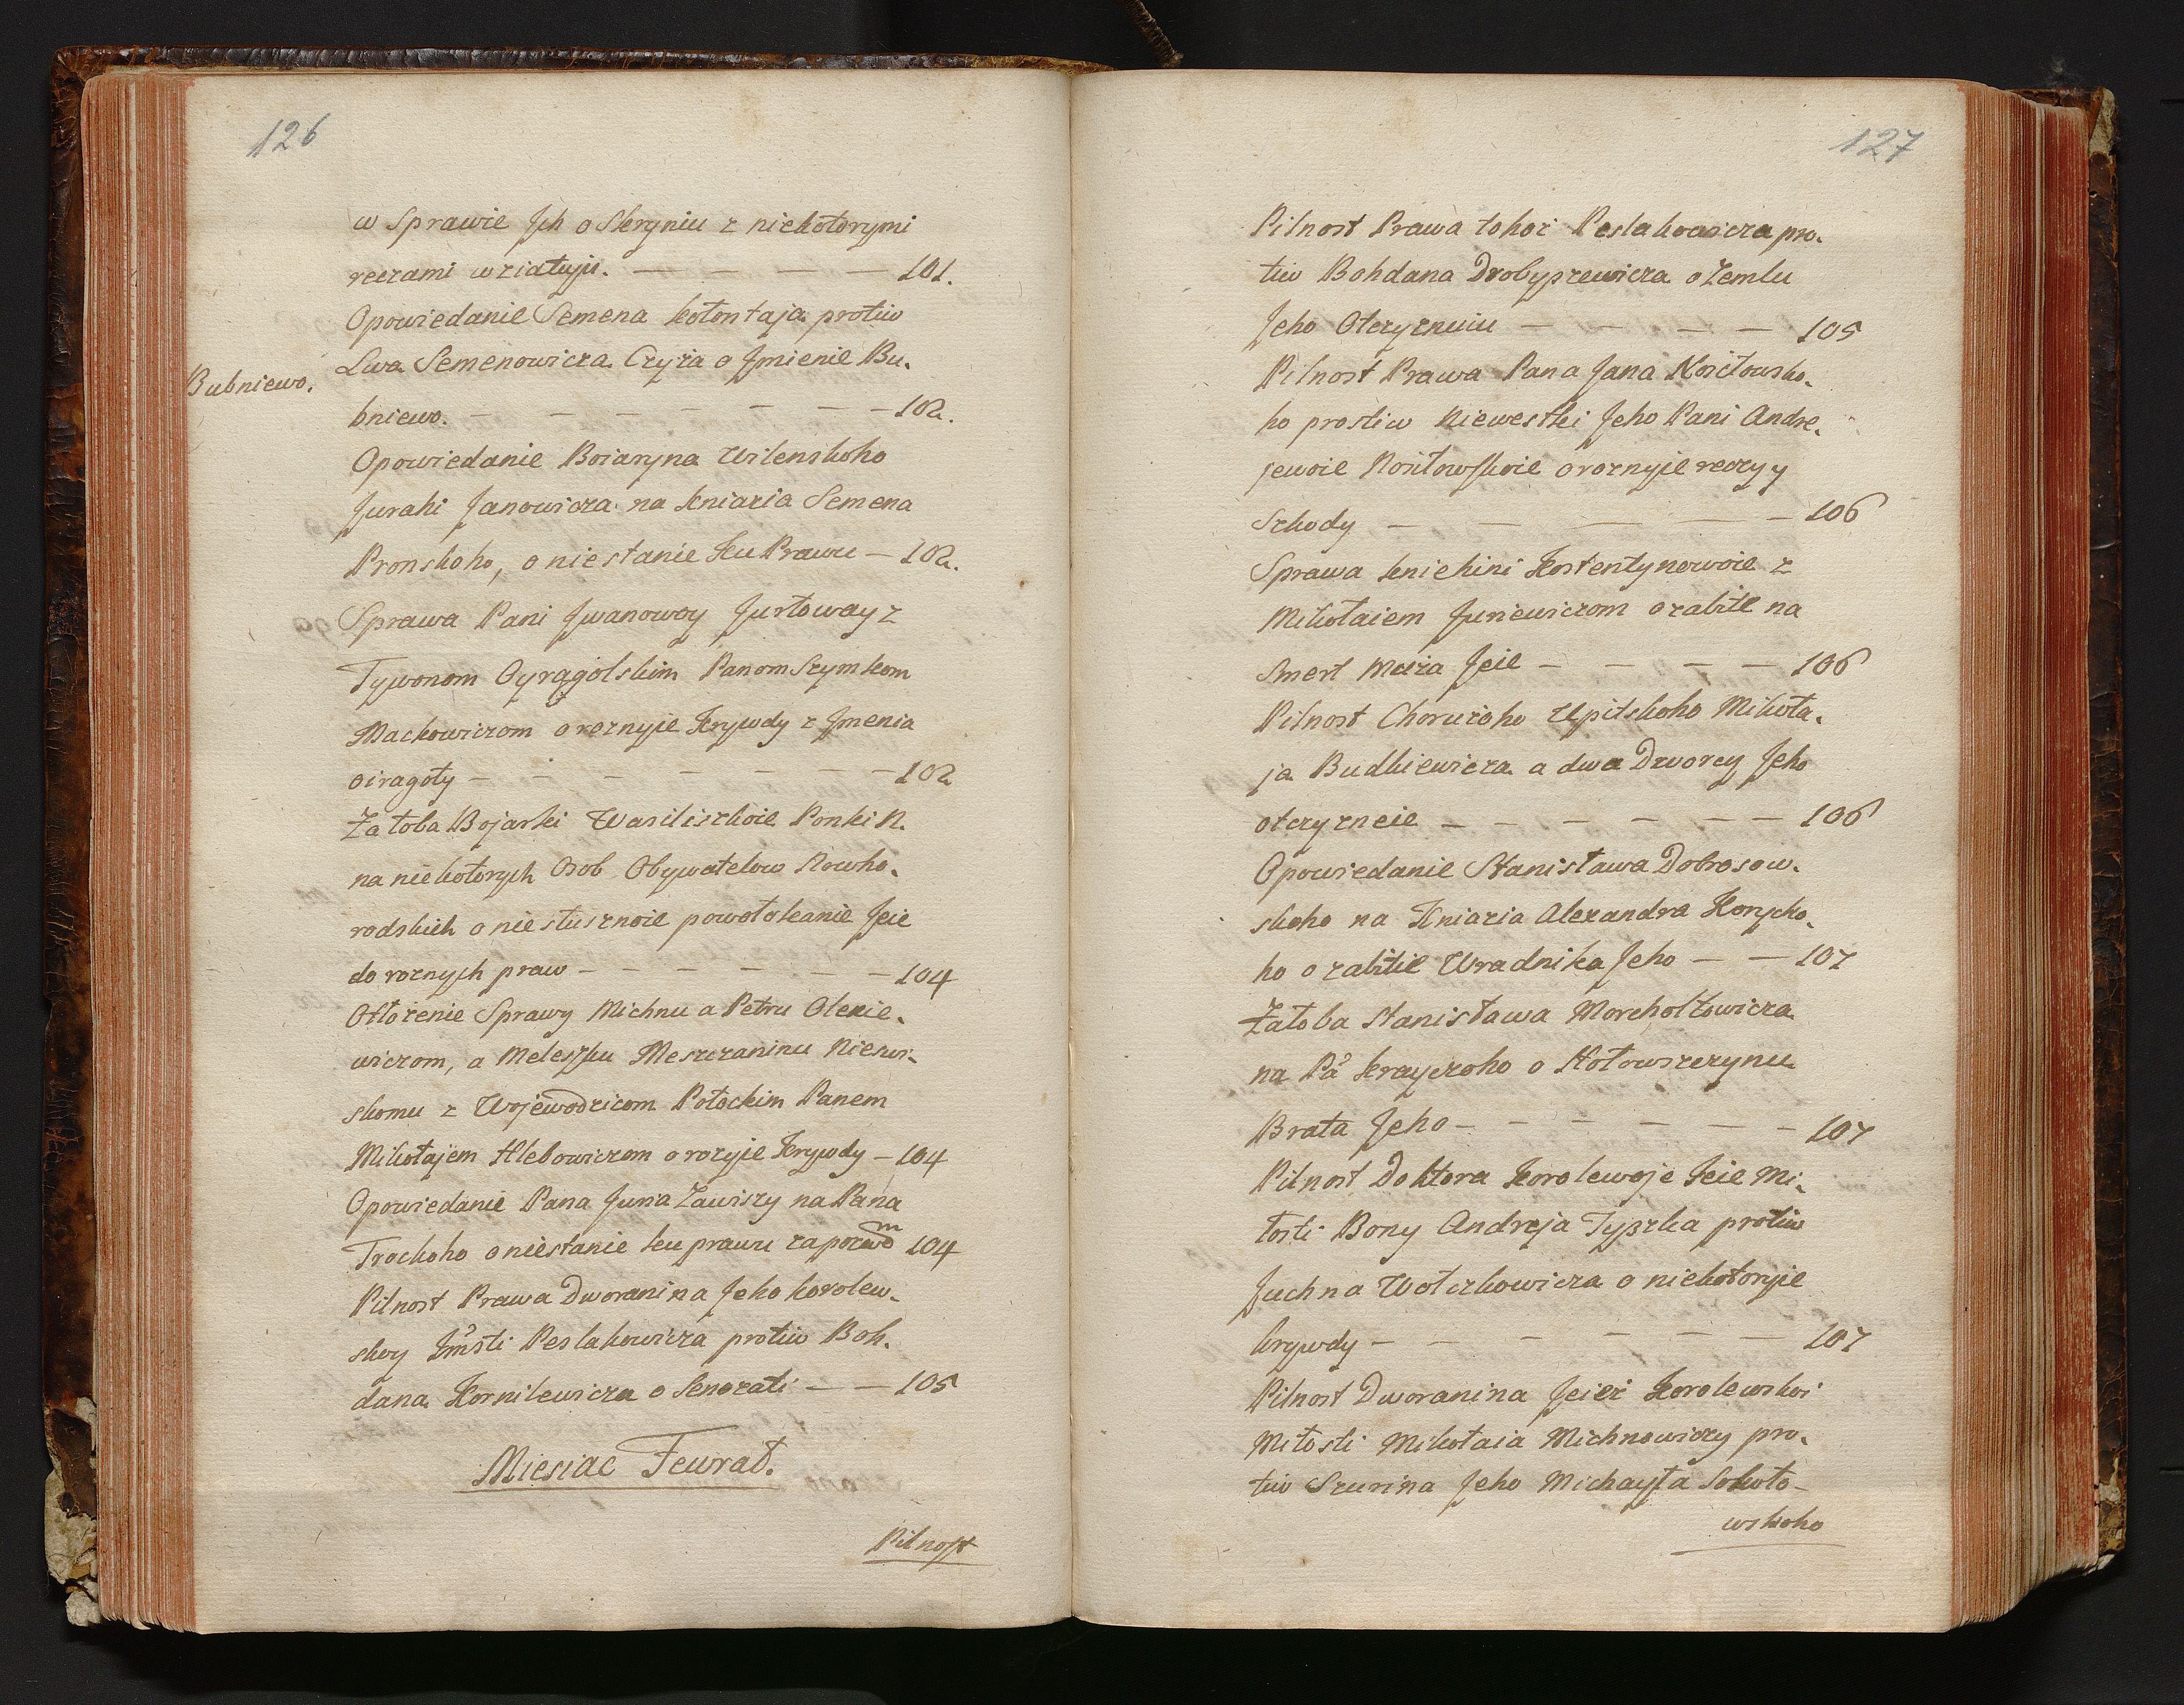 126
w Sprawie Jch o Skryniu z niekotorymi
reczami wziatuju. — — — — — 101.
Opowiedanie Semena kołontaja protiw
Lwa Semenowicza Czyża o Jmienie Bu-
Bubniewo.
bniewo. — — — — — — — 102.
Opowiedanie Boiaryna Wilenskoho
Jurahi Janowicza na kniazia Semena
Pronskoho, o niestanie ku Prawu — 102.
Sprawa Pani Jwanowoy Jurłoway z
Tywonom Oyragolskim Panom Szymkom
Mackowiczom o roznyie Krywdy z Jmenia
oiragoły — — — — — — — 102
Załoba Bojarki Wasiliszkoie Ponki N.
na niekotorych Osob Obywatelow Nowho-
rodskich o niesłusznoie powołokanie Jeie
do roznych praw — — — — — — 104
Otłożenie Sprawy Michnu a Petru Olexie-
wiczom, a Meleszku Meszczaninu Nieswi-
skomu z Wojewodzicom Połockim Panem
Mikołajem Hlebowiczom o rozyje Krywdy — 104
Opowiedanie Pana Juria Zawiszy na Pana
Trockoho o niestanie ku prawu za pozwom 104
Pilnost Prawa Dworanina Jeho korolew-
skoy Jmsti Peslakowicza protiw Boh-
dana Kornilewicza o Senozati — — 105
Miesiac Fewrał.
Pilnost
127
Pilnost Prawa tohoż Peslakowicza pro-
tiw Bohdana Drobyszewicza o Zemlu
Jeho Otczyznuiu — — — — 105
Pilnost Prawa Pana Jana Kosiłowsko-
ho prostiw Niewestki Jeho Pani Andre-
jewoie Kosiłowskoie o roznyje reczy y
Szkody — — — — — 106
Sprawa kniehini Kostentynowoie z
Mikołaiem Juniewiczom o zabite na
Smert Muża Jeie — — — — 106
Pilnost Chorużoho Upitskoho Mikoła-
ja Budkiewicza a dwa Dworcy Jeho
otczyzneie — — — — — — 106
Opowiedanie Stanisława Dobrosow-
skoho na Kniazia Alexandra Korycko-
ho o zabitie Wradnika Jeho — — 107
Załoba Stanisława Morchołtowicza
na Pa Krayczoho o Hołowszczynu
Brata Jeho — — — — — — 107
Pilnost Doktora Korolewoje Jeie Mi-
łosti Bony Andreja Tyszka protiw
Juchna Wołczkowicza o niekotoryie
krywdy — — — — — — 107
Pilnost Dworanina Jeież Korolewskoi
Miłosti Mikołaia Michnowiczy pro-
tiw Szurina Jeho Michayła Sokoło-
wskoho